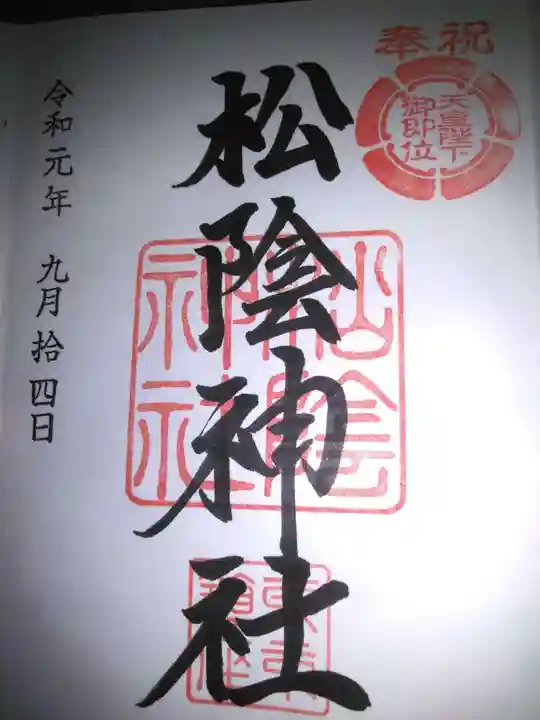 奉祝
天皇陛下
御即位
松陰神社
松陰神社
令和元年 九月拾四日